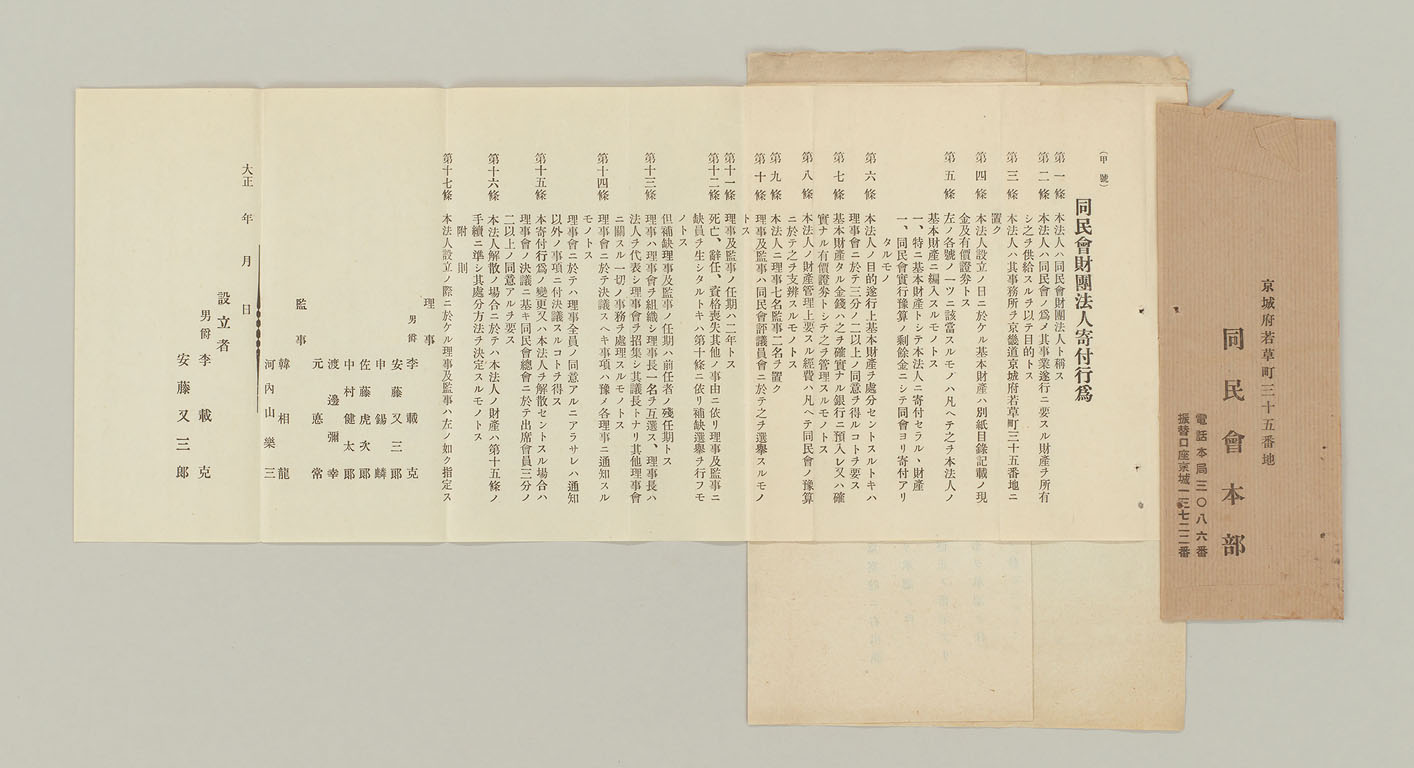 京城府若草町三十五番地
同民會本部
電話本局三〇八六番
振替口座京城一三七二二番
(甲號)
同民會財團法人寄付行爲
第一條 本法人ハ同民會財團法人ト稱ス
第二條 本法人ハ同民會ノ爲メ其事業遂行ニ要スル財產ヲ所有
シ之ヲ供給スルヲ以テ目的トス
第三條 本法人ハ其事務所ヲ京畿道京城府若草町三十五番地ニ
置ク
第四條 本法人設立ノ日ニ於ケル基本財產ハ別紙目錄記載ノ現
金及有價證券トス
第五條 左ノ各號ノ一ツニ該當スルモノハ凡ヘテ之ヲ本法人ノ
基本財產ニ編入スルモノトス
一、特ニ基本財產トシテ本法人ニ寄付セラル丶財產
一、同民會實行豫算ノ剩餘金ニシテ同會ヨリ寄付アリ
タルモノ
第六條 本法人ノ目的遂行上基本財產ヲ處分セントスルトキハ
理事會ニ於テ三分ノ二以上ノ同意ヲ得ルコトヲ要ス
第七條 基本財產タル金錢ハ之ヲ確實ナル銀行ニ預入レ又ハ確
實ナル有價證券トシテ之ヲ管理スルモノトス
第八條 本法人ノ財產管理上要スル經費ハ凡ヘテ同民會ノ豫算
ニ於テ之ヲ支辨スルモノトス
第九條 本法人ニ理事七名監事二名ヲ置ク
第十條 理事及監事ハ同民會評議員會ニ於テ之ヲ選擧スルモノ
トス
第十一條 理事及監事ノ任期ハ二年トス
第十二條 死亡、辭任、資格喪失其他ノ事由ニ依リ理事及監事ニ
缺員ヲ生シタルトキハ第十條ニ依リ補缺選擧ヲ行フモ
ノトス
但補缺理事及監事ノ任期ハ前任者ノ殘任期トス
第十三條 理事ハ理事會ヲ組織シ理事長一名ヲ互選ス、理事長ハ
法人ヲ代表シ理事會ヲ招集シ其議長トナリ其他理事會
ニ關スル一切ノ事務ヲ處理スルモノトス
第十四條 理事會ニ於テ決議スヘキ事項ハ豫メ各理事ニ通知スル
モノトス
理事會ニ於テハ理事全員ノ同意アルニアラサレハ通知
以外ノ事項ニ付決議スルコトヲ得ス
第十五條 本寄付行爲ノ變更又ハ本法人ヲ解散セントスル場合ハ
理事會ノ決議ニ基キ同民會總會ニ於テ出席會員三分ノ
二以上ノ同意アルヲ要ス
第十六條 本法人解散ノ場合ニ於テハ本法人ノ財產ハ第十五條ノ
手續ニ準シ其處分方法ヲ決定スルモノトス
附則
第十七條 本法人設立ノ際ニ於ケル理事及監事ハ左ノ如ク指定ス
理事
男爵 李載克
安藤又三郎
申錫麟
佐藤虎次郎
中村健太郎
渡邊彌幸
元悳常
監事
韓相龍
河內山樂三
大正 年 月 日
設立者
男爵 李載克
安藤又三郎